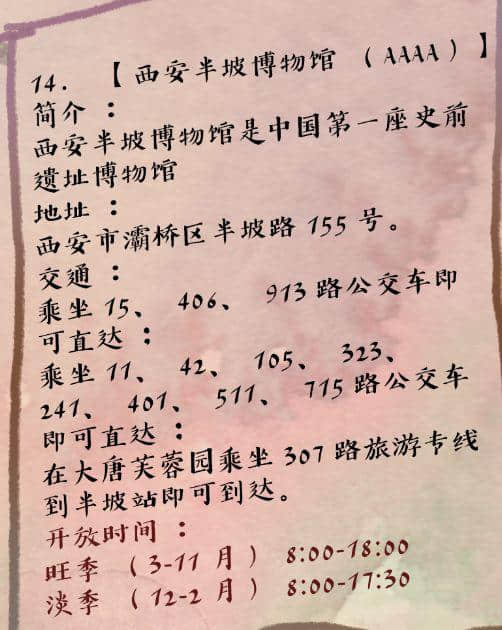 14. 【西安半坡博物馆 （AAAA）】
简介：
西安半坡博物馆是中国第一座史前
遗址博物馆
地址：
西安市灞桥区半坡路 155 号。
交通：
乘坐 15、 406、 913 路公交车即
可直达：
乘坐 11、 42、 105、 323、
241、 401、 511、 715 路公交车
即可直达：
在大唐芙蓉园乘坐 307 路旅游专线
到半坡站即可到达。
开放时间：
旺季 （3-11 月） 8:00-18:00
淡季 （12-2 月） 8:00-17:30